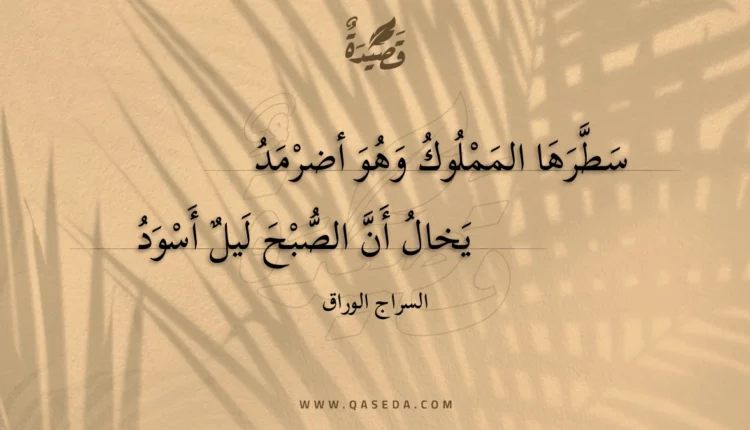 قَصِيدَةٌ
سَطَّرَهَا المَمْلُوكُ وَهُوَ أضرْمَدُ
يَخالُ أَنَّ الصُّبْحَ لَيلٌ أَسْوَدُ
السراج الوراق
WWW.QASEDA.COM